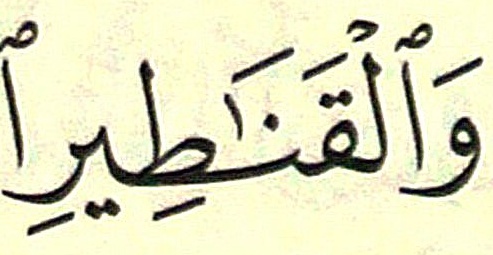 وَٱلْقَنَـٰطِيرِ ٱ